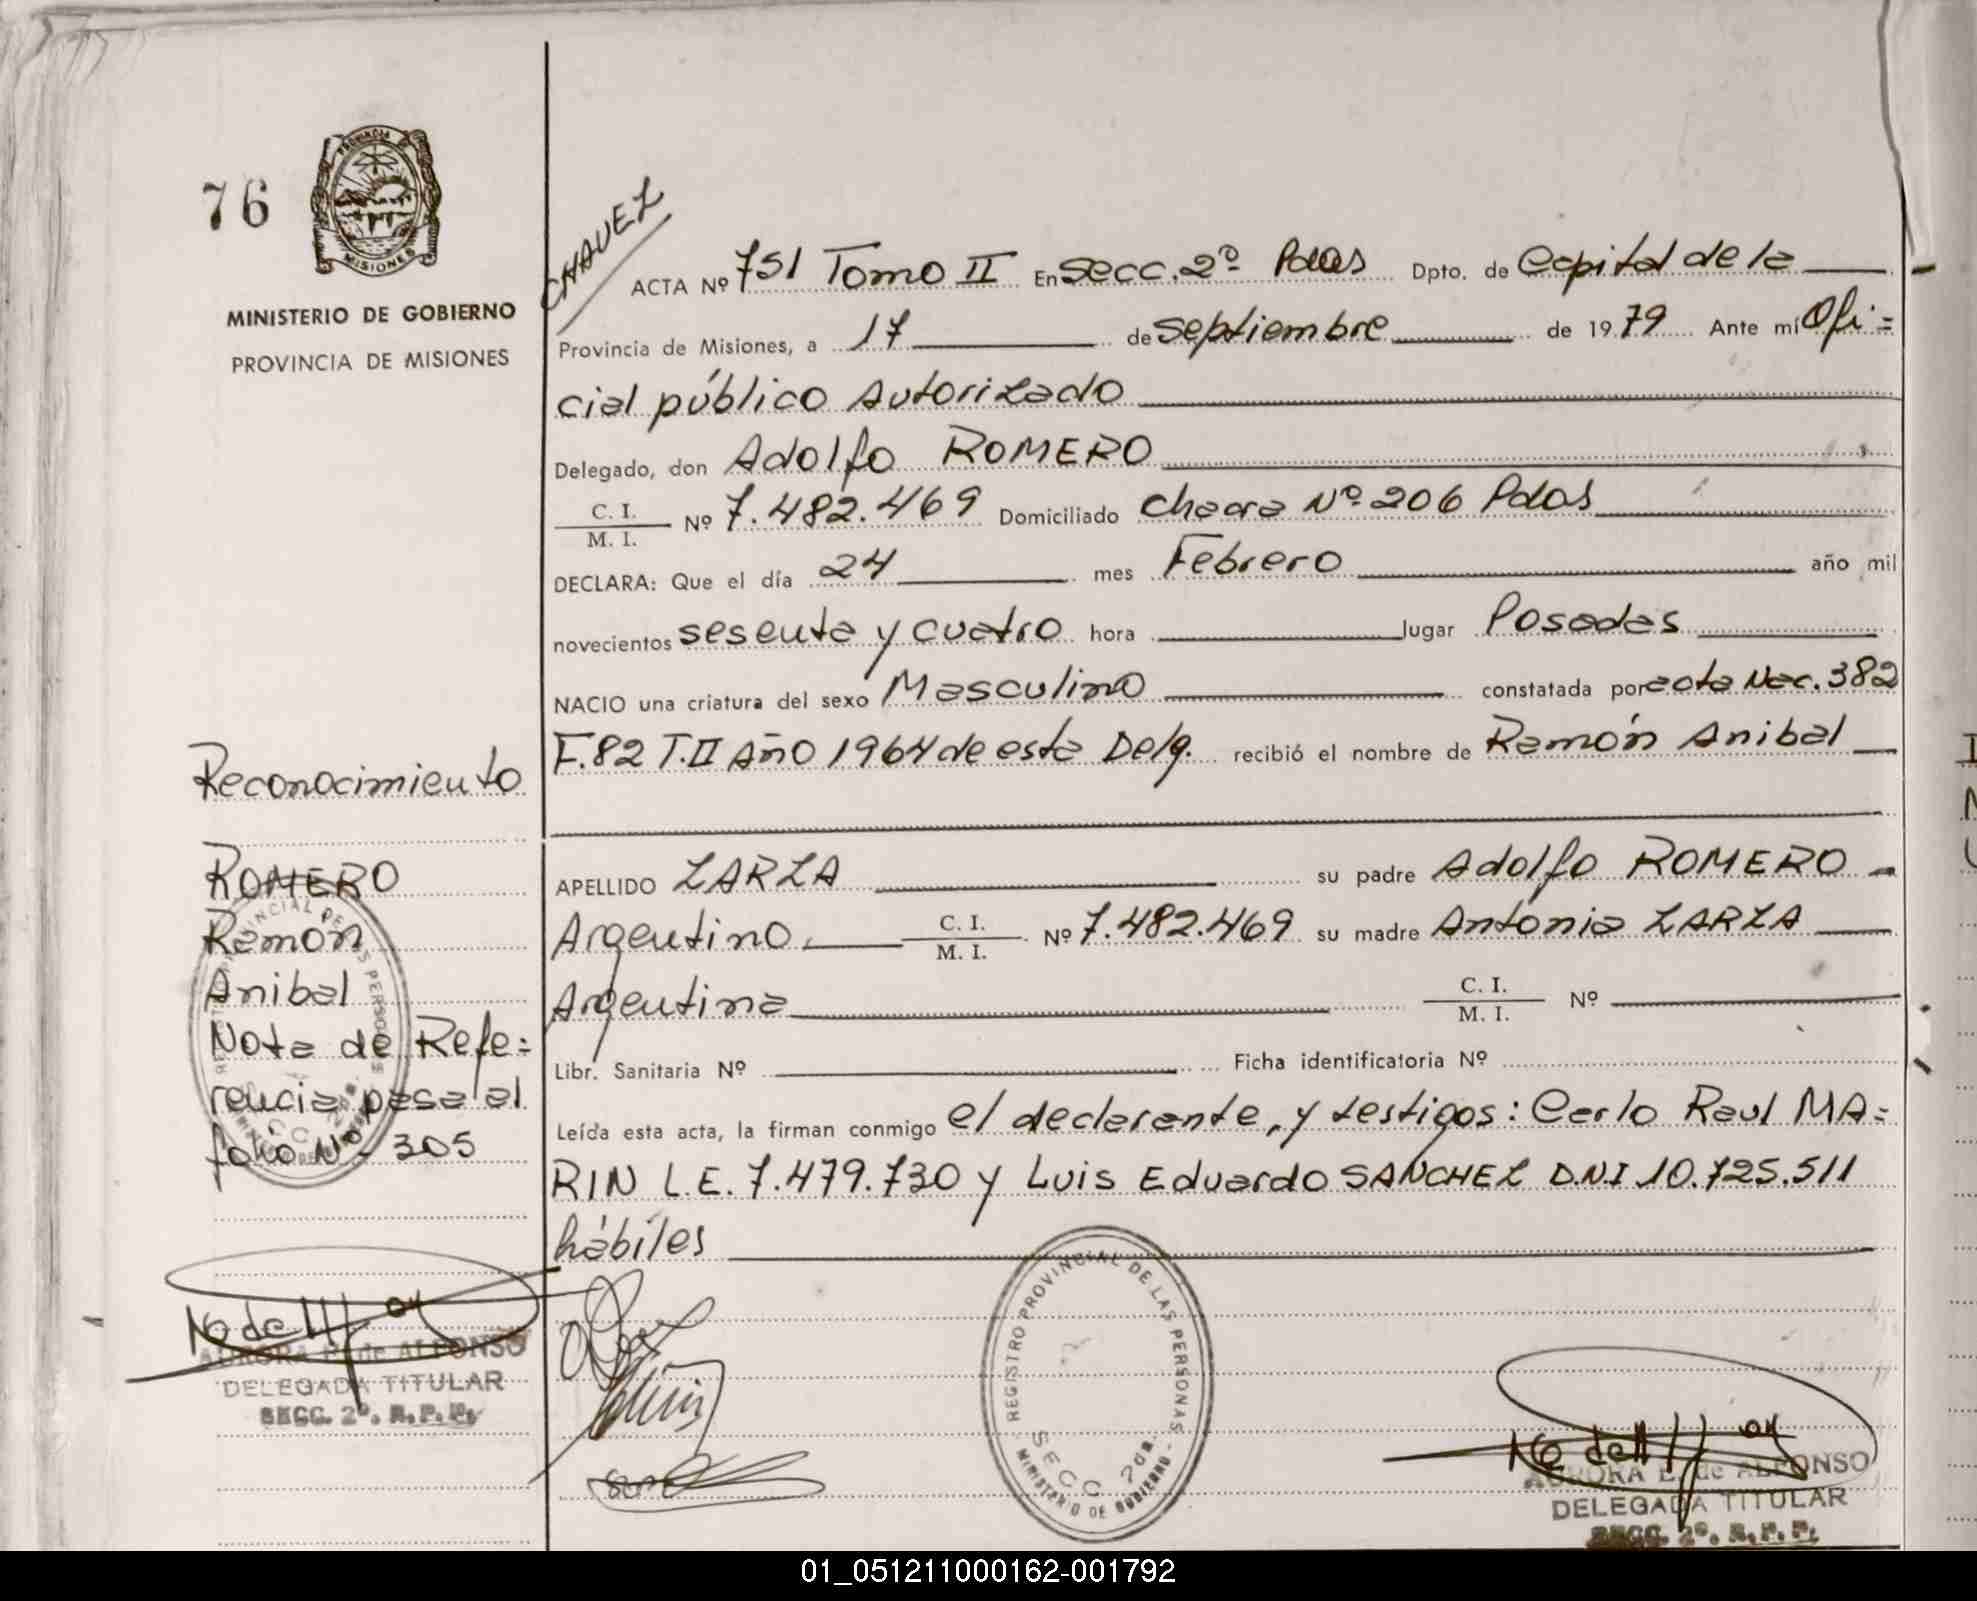 76
PROVINCIA
MISIONES
MINISTERIO DE GOBIERNO
PROVINCIA DE MISIONES
CHAVEZ
ACTA Nº 751 Tomo II En Secc. 2º Pdas Dpto. de Capital de la
Provincia de Misiones, a 17 de Septiembre de 1979 Ante mí Ofi=
cial público Autorizado
Delegado, don Adolfo ROMERO
C. I.
M. I.
Nº 7.482.469 Domiciliado Chacra Nº 206 Pdas
DECLARA: Que el día 24 mes Febrero año mil
novecientos sesenta y cuatro hora lugar Posadas
NACIO una criatura del sexo Masculino constatada por acta Nac. 382
F. 82 T. II Año 1964 de esta Delg. recibió el nombre de Ramón Anibal
APELLIDO ZARZA su padre Adolfo ROMERO
Argentino. C. I. M. I. Nº 7.482.469 su madre Antonia ZARZA
Argentina C. I. M. I. Nº
Libr. Sanitaria Nº Ficha identificatoria Nº
Leída esta acta, la firman conmigo el declarante, y testigos: Carlo Raul MA=
RIN L.E. 7.479.730 y Luis Eduardo SANCHEZ D.N.I 10.725.511
hábiles
Reconocimiento
ROMERO
Ramón
Anibal
Nota de Refe=
rencia pasa al
folio Nº 305
AURORA E. de ALFONSO
DELEGADA TITULAR
SECC. 2º. R. P. P.
REGISTRO PROVINCIAL DE LAS PERSONAS
SECC 2da.
MINISTERIO DE GOBIERNO
AURORA E. de ALFONSO
DELEGADA TITULAR
SECC. 2º. R. P. P.
01_051211000162-001792